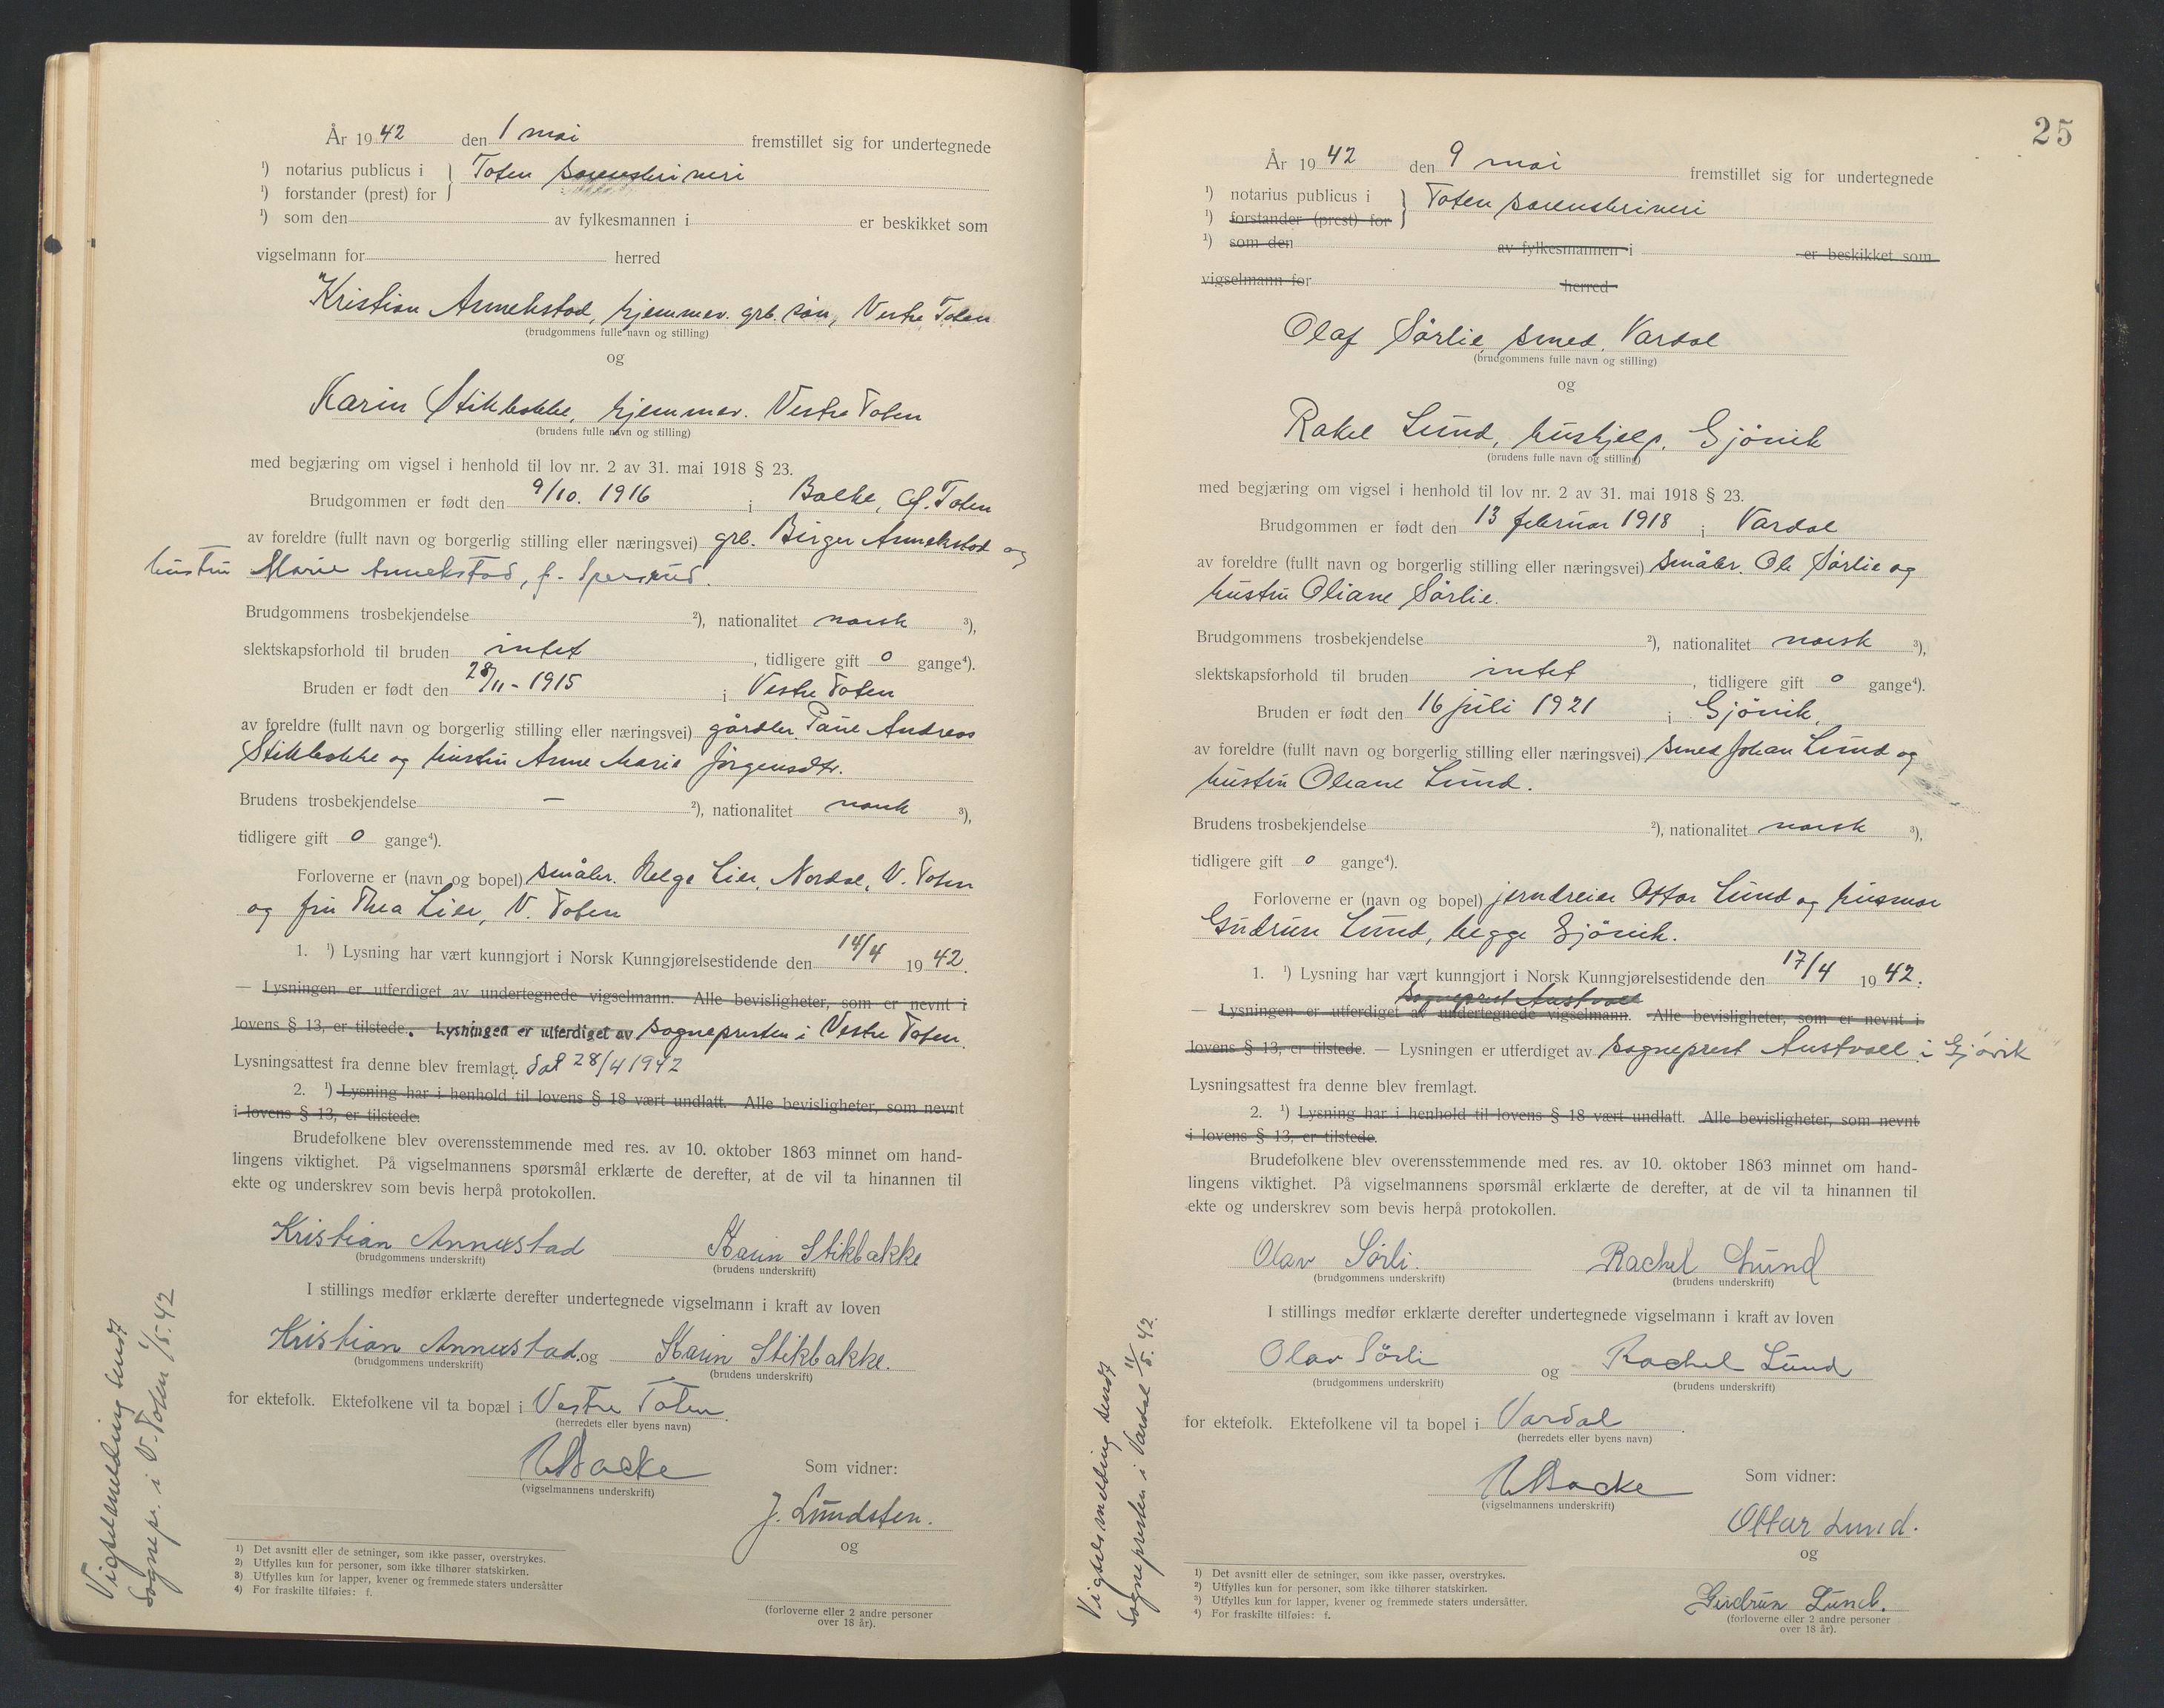 År 1942 den 1 mai fremstillet sig for undertegnede
1) notarius publicus i } Toten sorenskriveri
1) forstander (prest) for
1) som den av fylkesmannen i er beskikket som
vigselmann for herred
Kristian Annekstad, hjemmev. grb. søn, Vestre Toten
(brudgommens fulle navn og stilling)
og
Karin Stikbakke, hjemmev. Vestre Toten
(brudens fulle navn og stilling)
med begjæring om vigsel i henhold til lov nr. 2 av 31. mai 1918 § 23.
Brudgommen er født den 9/10. 1916 i Balke, Ø. Toten
av foreldre (fullt navn og borgerlig stilling eller næringsvei) grb. Birger Annekstad og
hustru Marie Annekstad, f.
Brudgommens trosbekjendelse 2), nationalitet norsk 3),
slektskapsforhold til bruden intet, tidligere gift 0 gange4).
Bruden er født den 28/11 - 1915 i Vestre Toten
av foreldre (fullt navn og borgerlig stilling eller næringsvei) gårdbr. Paul Andreas
Stikbakke og hustru Anne Marie Jørgensdtr.
Brudens trosbekjendelse — 2), nationalitet norsk 3),
tidligere gift 0 gange4).
Forloverne er (navn og bopel) småbr. Helge Lier, Nordal, V. Toten
og fru Thea Lier, V. Toten
1. 1) Lysning har vært kunngjort i Norsk Kunngjørelsestidende den 14/4 1942.
— Lysningen er utferdiget av undertegnede vigselmann. Alle bevisligheter, som er nevnt i
lovens § 13, er tilstede. Lysningen er utferdiget av sognepresten i Vestre Toten.
Lysningsattest fra denne blev fremlagt. dat 28/4 1942
2. 1) Lysning har i henhold til lovens § 18 vært undlatt. Alle bevisligheter, som nevnt
i lovens § 13, er tilstede.
Brudefolkene blev overensstemmende med res. av 10. oktober 1863 minnet om hand-
lingens viktighet. På vigselmannens spørsmål erklærte de derefter, at de vil ta hinannen til
ekte og underskrev som bevis herpå protokollen.
Kristian Annekstad Karin Stikbakke
(brudgommens underskrift) (brudens underskrift)
I stillings medfør erklærte derefter undertegnede vigselmann i kraft av loven
Kristian Annekstad. og Karin Stikbakke.
(brudgommens underskrift) (brudens underskrift)
for ektefolk. Ektefolkene vil ta bopæl i Vestre Toten.
(herredets eller byens navn)
Backe Som vidner:
(vigselmannens underskrift)
J. Lundsten.
og
1) Det avsnitt eller de setninger, som ikke passer, overstrykes.
2) Utfylles kun for personer, som ikke tilhører statskirken.
3) Utfylles kun for lapper, kvener og fremmede staters undersåtter
4) For fraskilte tilføies: f.
(forloverne eller 2 andre personer
over 18 år).
Vigselsmelding sendt
sognepr. i V. Toten 1/5. 42
25
År 1942 den 9 mai fremstillet sig for undertegnede
1) notarius publicus i } Toten sorenskriveri
1) forstander (prest) for
1) som den av fylkesmannen i er beskikket som
vigselmann for herred
Olaf Sørlie, smed, Vardal
(brudgommens fulle navn og stilling)
og
Rakel Lund, hushjelp. Gjøvik
(brudens fulle navn og stilling)
med begjæring om vigsel i henhold til lov nr. 2 av 31. mai 1918 § 23.
Brudgommen er født den 13 februar 1918 i Vardal
av foreldre (fullt navn og borgerlig stilling eller næringsvei) småbr. Ole Sørlie og
hustru Oliane Sørlie.
Brudgommens trosbekjendelse 2), nationalitet norsk 3),
slektskapsforhold til bruden intet, tidligere gift 0 gange4).
Bruden er født den 16 juli 1921 i Gjøvik,
av foreldre (fullt navn og borgerlig stilling eller næringsvei) smed Johan Lund og
hustru Oleane Lund.
Brudens trosbekjendelse 2), nationalitet norsk 3),
tidligere gift 0 gange4).
Forloverne er (navn og bopel) jerndreier Ottar Lund og husmor
Gudrun Lund, begge Gjøvik.
1. 1) Lysning har vært kunngjort i Norsk Kunngjørelsestidende den 17/4 1942.
sogneprest Austvoll
— Lysningen er utferdiget av undertegnede vigselmann. Alle bevisligheter, som er nevnt i
lovens § 13, er tilstede. — Lysningen er utferdiget av sogneprest Austvoll i Gjøvik
Lysningsattest fra denne blev fremlagt.
2. 1) Lysning har i henhold til lovens § 18 vært undlatt. Alle bevisligheter, som nevnt
i lovens § 13, er tilstede.
Brudefolkene blev overensstemmende med res. av 10. oktober 1863 minnet om hand-
lingens viktighet. På vigselmannens spørsmål erklærte de derefter, at de vil ta hinannen til
ekte og underskrev som bevis herpå protokollen.
Olav Sørli. Rachel Lund
(brudgommens underskrift) (brudens underskrift)
I stillings medfør erklærte derefter undertegnede vigselmann i kraft av loven
Olav Sørli og Rachel Lund
(brudgommens underskrift) (brudens underskrift)
for ektefolk. Ektefolkene vil ta bopel i Vardal.
(herredets eller byens navn)
Backe Som vidner:
(vigselmannens underskrift)
Ottar Lund.
og
Gudrun Lund.
1) Det avsnitt eller de setninger, som ikke passer, overstrykes.
2) Utfylles kun for personer, som ikke tilhører statskirken.
3) Utfylles kun for lapper, kvener og fremmede staters undersåtter.
4) For fraskilte tilføies: f.
(forloverne eller 2 andre personer
over 18 år).
Vigselsmelding sendt
sognepresten i Vardal 11/5. 42.